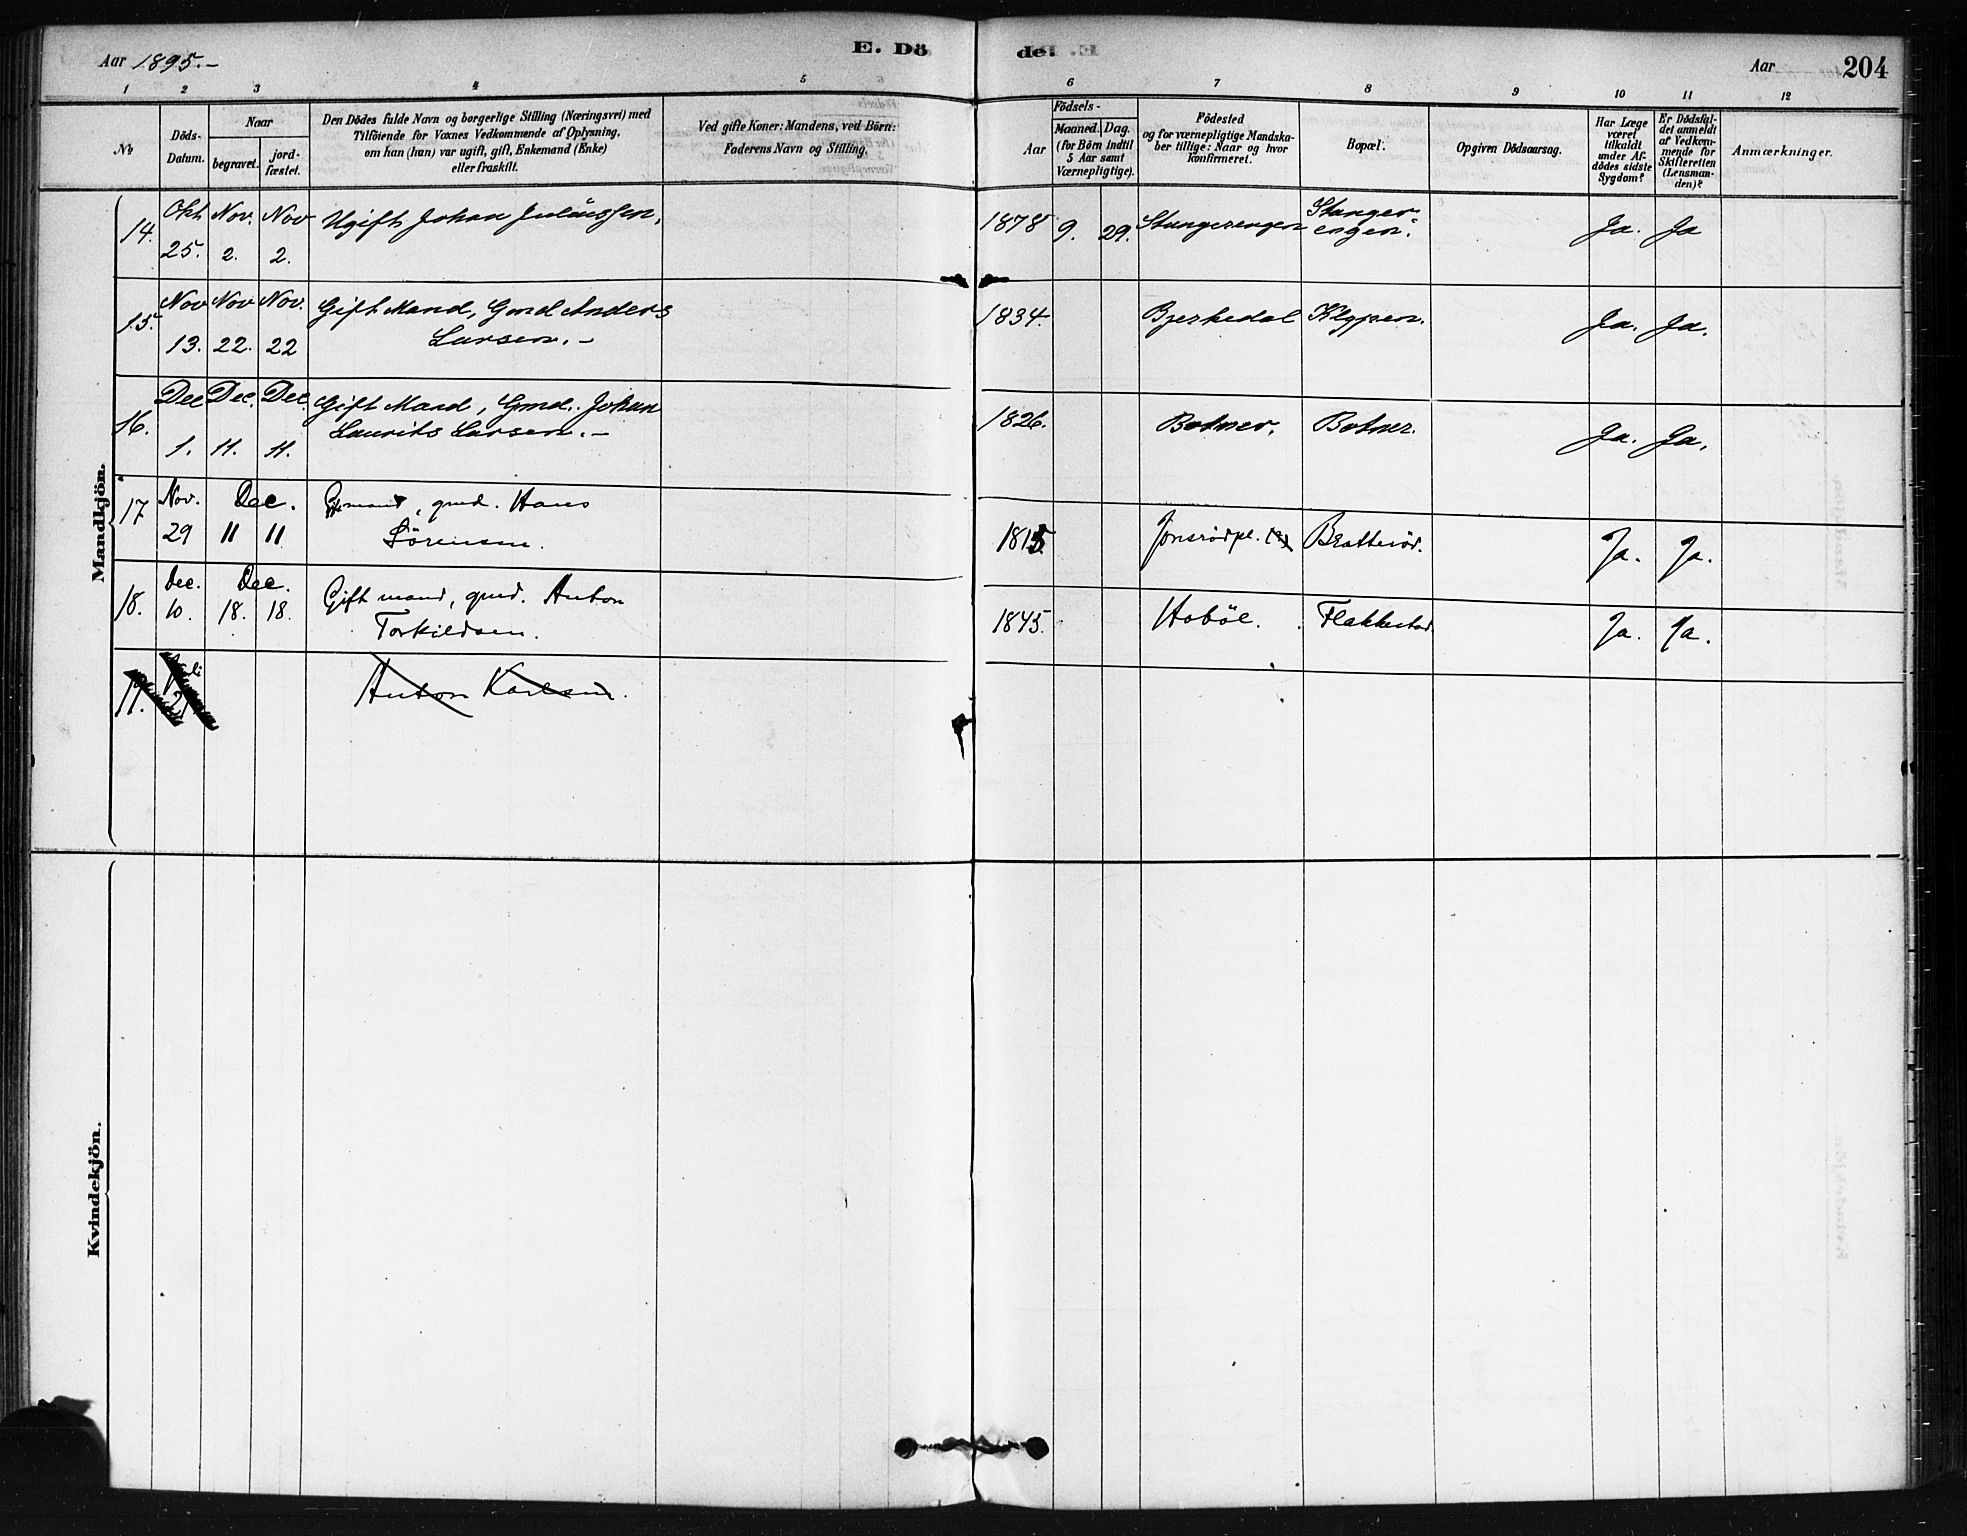 Aar 1895.-
E. Dö
de.
Aar
204
1 2 3 4 5 6 7 8 9 10 11 12
№
Döds-
Datum.
Naar
begravet.
jord-
fæstet.
Den Dödes fulde Navn og borgerlige Stilling (Næringsvei) med
Tilföiende for Voxnes Vedkommende af Oplysning,
om han (hun) var ugift, gift, Enkemand (Enke)
eller fraskilt.
Ved gifte Koner: Mandens, ved Börn:
Faderens Navn og Stilling.
Födsels-
Aar
Maaned. Dag.
(for Börn indtil
5 Aar samt
Værnepligtige).
Födested
og for værnepligtige Mandska-
ber tillige: Naar og hvor
konfirmeret.
Bopæl.
Opgiven Dödsaarsag.
Har Læge
været
tilkaldt
under Af-
dödes sidste
Sygdom?
Er Dödsfal-
det anmeldt
af Vedkom-
mende for
Skifteretten
(Lensman-
den)?
Anmærkninger.
Mandkjön.
14. Okt 25. Nov. 2. Nov 2. Ugift Johan Juliussen, 1878 9. 29. Stangerengen Stanger-
engen. Ja. Ja
15. Nov 13. Nov 22. Nov. 22 Gift Mand, Gmd Anders
Larsen.- 1834. Bjerkedal Klypen. Ja. Ja.
16. Dec 1. Dec. 11. Dec. 11. Gift Mand, Gmd. Johan
Laurits Larsen.- 1826. Botner. Botner. Ja. Ja.
17 Nov. 29 Dec. 11 11 gmd. Hans
Sörensen. 1815 Jonsrödpl. Bratteröd. Ja. Ja.
18. Dec. 10. Dec. 18. 18. Gift mand, gmd. Anton
Torkildsen. 1845. Hobøl. Flakkestad. Ja. Ja.
19. Anton Karlsen.
Kvindekjön.